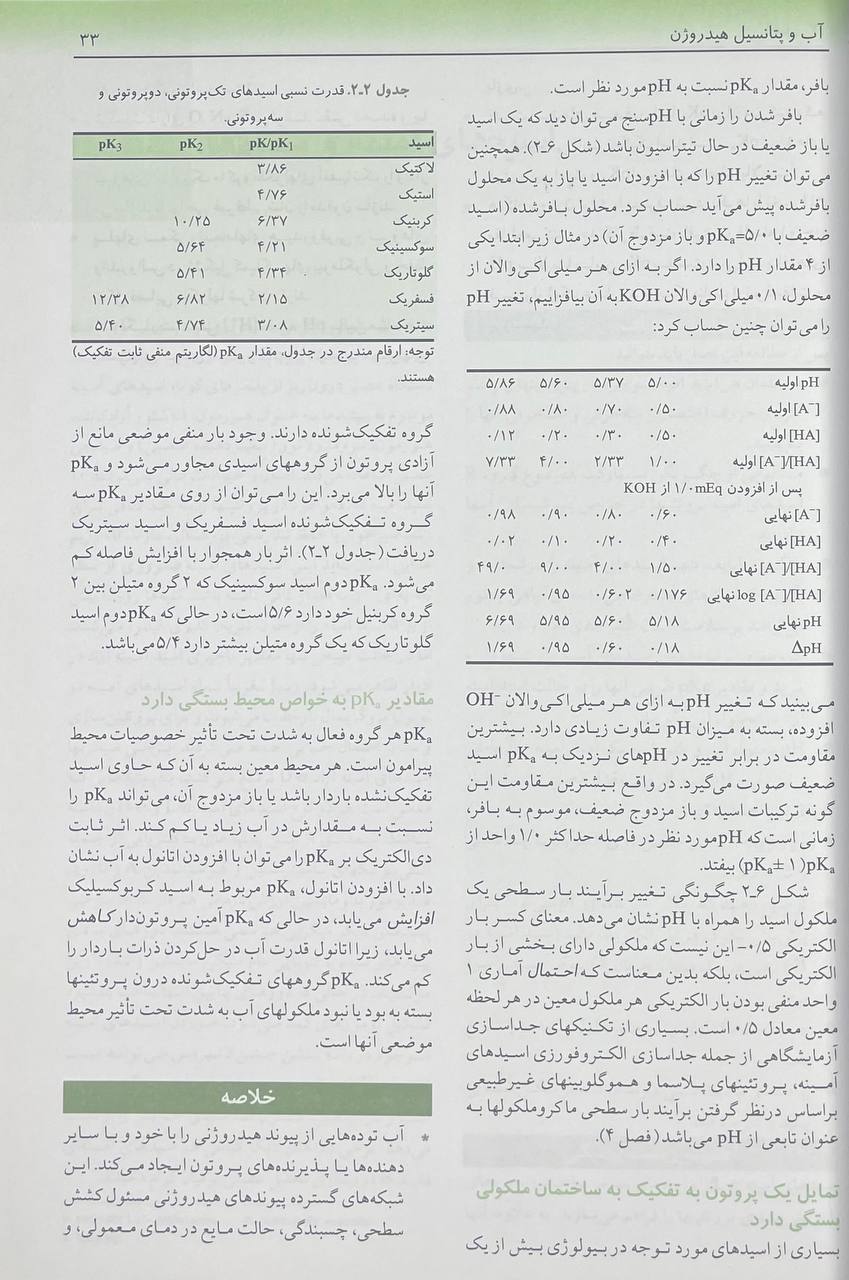 آب و پتانسیل هیدروژن
۳۳
بافر، مقدار pKa نسبت به pH مورد نظر است.
بافر شدن را زمانی با pH‌سنج می‌توان دید که یک اسید
یا باز ضعیف در حال تیتراسیون باشد (شکل ۶-۲). همچنین
می‌توان تغییر pH را که با افزودن اسید یا باز به یک محلول
بافرشده پیش می‌آید حساب کرد. محلول بافرشده (اسید
ضعیف با pKa=۵/۰ و باز مزدوج آن) در مثال زیر ابتدا یکی
از ۴ مقدار pH را دارد. اگر به ازای هر میلی‌اکی‌والان از
محلول، ۰/۱ میلی‌اکی‌والان KOH به آن بیافزاییم، تغییر pH
را می‌توان چنین حساب کرد:
pH اولیه ۵/۰۰ ۵/۳۷ ۵/۶۰ ۵/۸۶
[A⁻] اولیه ۰/۵۰ ۰/۷۰ ۰/۸۰ ۰/۸۸
[HA] اولیه ۰/۵۰ ۰/۳۰ ۰/۲۰ ۰/۱۲
[A⁻]/[HA] اولیه ۱/۰۰ ۲/۳۳ ۴/۰۰ ۷/۳۳
پس از افزودن ۰/۱mEq از KOH
[A⁻] نهایی ۰/۶۰ ۰/۸۰ ۰/۹۰ ۰/۹۸
[HA] نهایی ۰/۴۰ ۰/۲۰ ۰/۱۰ ۰/۰۲
[A⁻]/[HA] نهایی ۱/۵۰ ۴/۰۰ ۹/۰۰ ۴۹/۰
log [A⁻]/[HA] نهایی ۰/۱۷۶ ۰/۶۰۲ ۰/۹۵ ۱/۶۹
pH نهایی ۵/۱۸ ۵/۶۰ ۵/۹۵ ۶/۶۹
ΔpH ۰/۱۸ ۰/۶۰ ۰/۹۵ ۱/۶۹
می‌بینید که تغییر pH به ازای هر میلی‌اکی‌والان OH⁻
افزوده، بسته به میزان pH تفاوت زیادی دارد. بیشترین
مقاومت در برابر تغییر در pHهای نزدیک به pKa اسید
ضعیف صورت می‌گیرد. در واقع بیشترین مقاومت این
گونه ترکیبات اسید و باز مزدوج ضعیف، موسوم به بافر،
زمانی است که pH مورد نظر در فاصله حداکثر ۱/۰ واحد از
pKa (pKa± ۱) بیفتد.
شکل ۶-۲ چگونگی تغییر برآیند بار سطحی یک
ملکول اسید را همراه با pH نشان می‌دهد. معنای کسر بار
الکتریکی ۰/۵- این نیست که ملکولی دارای بخشی از بار
الکتریکی است، بلکه بدین معناست که احتمال آماری ۱
واحد منفی بودن بار الکتریکی هر ملکول معین در هر لحظه
معین معادل ۰/۵ است. بسیاری از تکنیکهای جداسازی
آزمایشگاهی از جمله جداسازی الکتروفورزی اسیدهای
آمینه، پروتئینهای پلاسما و هموگلوبینهای غیرطبیعی
براساس درنظر گرفتن برآیند بار سطحی ماکروملکولها به
عنوان تابعی از pH می‌باشد (فصل ۴).
تمایل یک پروتون به تفکیک به ساختمان ملکولی
بستگی دارد
بسیاری از اسیدهای مورد توجه در بیولوژی بیش از یک
جدول ۲-۲. قدرت نسبی اسیدهای تک‌پروتونی، دوپروتونی و
سه‌پروتونی.
اسید pK/pK₁ pK₂ pK₃
لاکتیک ۳/۸۶
استیک ۴/۷۶
کربنیک ۶/۳۷ ۱۰/۲۵
سوکسینیک ۴/۲۱ ۵/۶۴
گلوتاریک ۴/۳۴ ۵/۴۱
فسفریک ۲/۱۵ ۶/۸۲ ۱۲/۳۸
سیتریک ۳/۰۸ ۴/۷۴ ۵/۴۰
توجه: ارقام مندرج در جدول، مقدار pKa (لگاریتم منفی ثابت تفکیک)
هستند.
گروه تفکیک‌شونده دارند. وجود بار منفی موضعی مانع از
آزادی پروتون از گروههای اسیدی مجاور می‌شود و pKa
آنها را بالا می‌برد. این را می‌توان از روی مقادیر pKa سه
گروه تفکیک‌شونده اسید فسفریک و اسید سیتریک
دریافت (جدول ۲-۲). اثر بار همجوار با افزایش فاصله کم
می‌شود. pKa دوم اسید سوکسینیک که ۲ گروه متیلن بین ۲
گروه کربنیل خود دارد ۵/۶ است، در حالی که pKa دوم اسید
گلوتاریک که یک گروه متیلن بیشتر دارد ۵/۴ می‌باشد.
مقادیر pKa به خواص محیط بستگی دارد
pKa هر گروه فعال به شدت تحت تأثیر خصوصیات محیط
پیرامون است. هر محیط معین بسته به آن که حاوی اسید
تفکیک‌نشده باردار باشد یا باز مزدوج آن، می‌تواند pKa را
نسبت به مقدارش در آب زیاد یا کم کند. اثر ثابت
دی‌الکتریک بر pKa را می‌توان با افزودن اتانول به آب نشان
داد. با افزودن اتانول، pKa مربوط به اسید کربوکسیلیک
افزایش می‌یابد، در حالی که pKa آمین پروتون‌دار کاهش
می‌یابد، زیرا اتانول قدرت آب در حل‌کردن ذرات باردار را
کم می‌کند. pKa گروههای تفکیک‌شونده درون پروتئینها
بسته به بود یا نبود ملکولهای آب به شدت تحت تأثیر محیط
موضعی آنها است.
خلاصه
* آب توده‌هایی از پیوند هیدروژنی را با خود و با سایر
دهنده‌ها یا پذیرنده‌های پروتون ایجاد می‌کند. این
شبکه‌های گسترده پیوندهای هیدروژنی مسئول کشش
سطحی، چسبندگی، حالت مایع در دمای معمولی، و